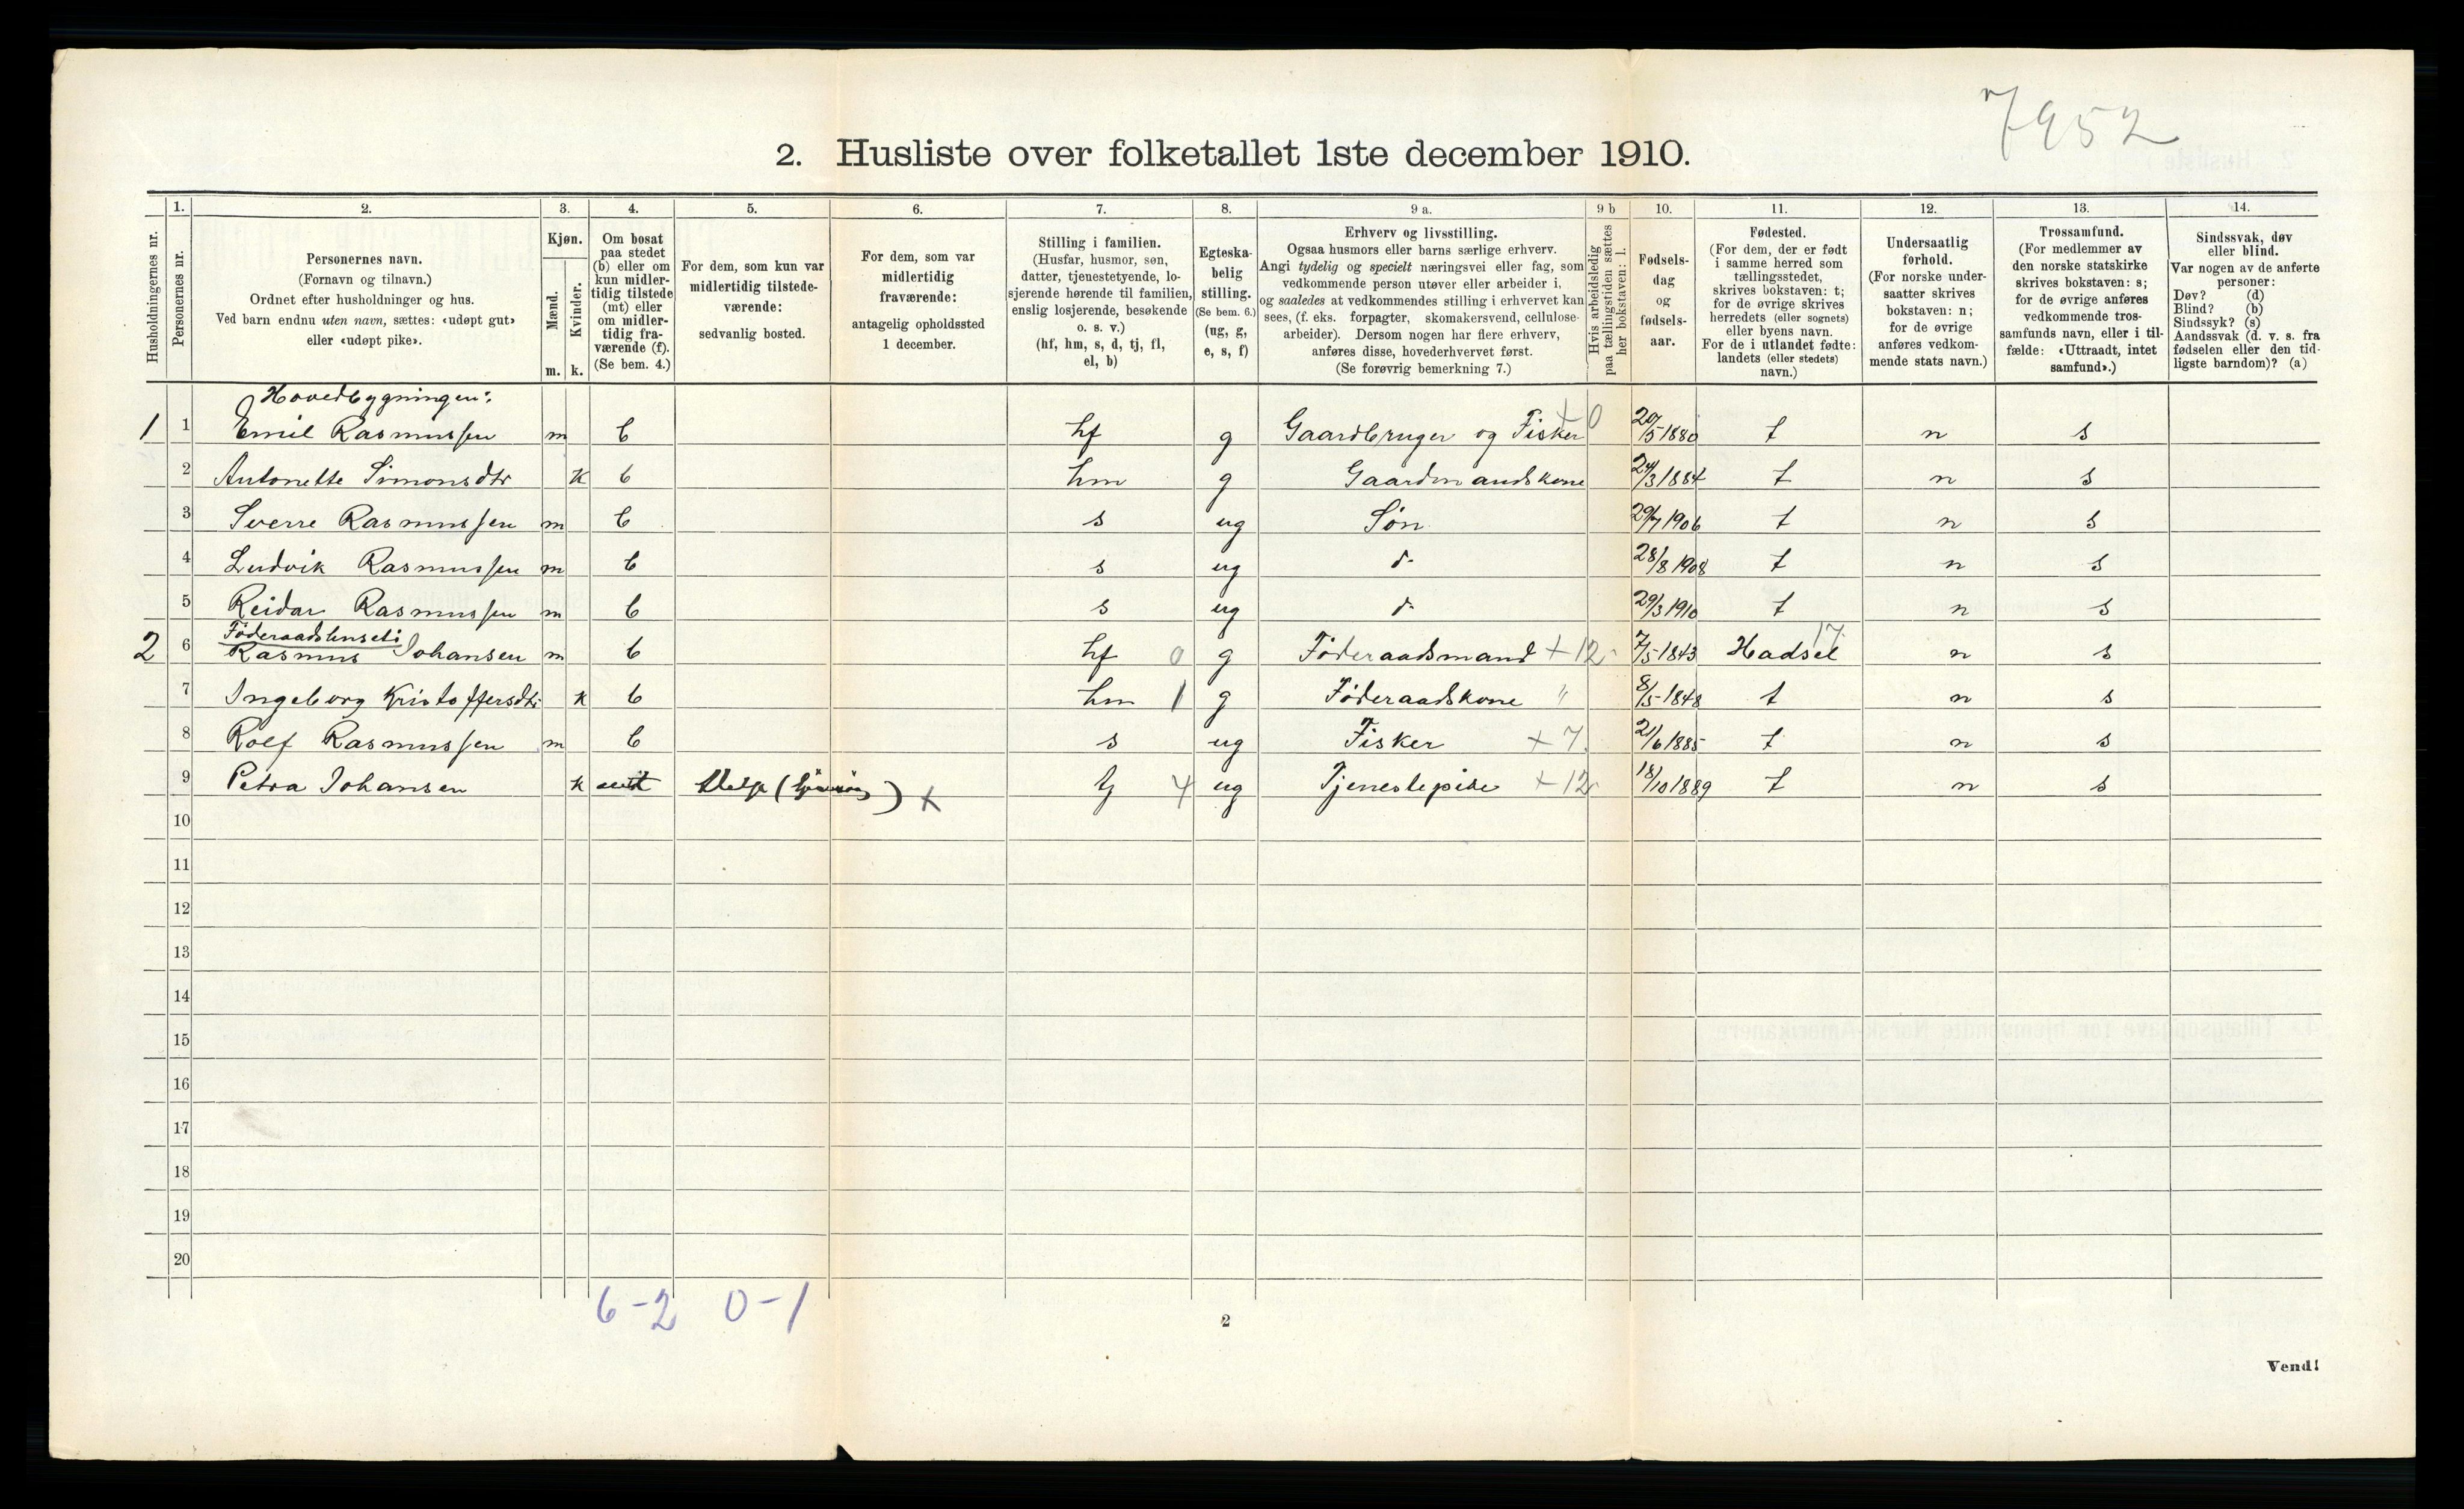 7952
2. Husliste over folketallet 1ste december 1910.
1. 2. 3. 4. 5. 6. 7. 8. 9 a. 9 b 10. 11. 12. 13. 14.
Husholdningernes nr.
Personernes nr.
Personernes navn.
(Fornavn og tilnavn.)
Ordnet efter husholdninger og hus.
Ved barn endnu uten navn, sættes: «udøpt gut»
eller «udøpt pike».
Kjøn.
Mænd.
Kvinder.
m. k.
Om bosat
paa stedet
(b) eller om
kun midler-
tidig tilstede
(mt) eller
om midler-
tidig fra-
værende (f).
(Se bem. 4.)
For dem, som kun var
midlertidig tilstede-
værende:
sedvanlig bosted.
For dem, som var
midlertidig
fraværende:
antagelig opholdssted
1 december.
Stilling i familien.
(Husfar, husmor, søn,
datter, tjenestetyende, lo-
sjerende hørende til familien,
enslig losjerende, besøkende
o. s. v.)
(hf, hm, s, d, tj, fl,
el, b)
Egteska-
belig
stilling.
(Se bem. 6.)
(ug, g,
e, s, f)
Erhverv og livsstilling.
Ogsaa husmors eller barns særlige erhverv.
Angi tydelig og specielt næringsvei eller fag, som
vedkommende person utøver eller arbeider i,
og saaledes at vedkommendes stilling i erhvervet kan
sees, (f. eks. forpagter, skomakersvend, cellulose-
arbeider). Dersom nogen har flere erhverv,
anføres disse, hovederhvervet først.
(Se forøvrig bemerkning 7.)
Hvis arbeidsledig
paa tællingstiden sættes
her bokstaven: l.
Fødsels-
dag
og
fødsels-
aar.
Fødested.
(For dem, der er født
i samme herred som
tællingsstedet,
skrives bokstaven: t;
for de øvrige skrives
herredets (eller sognets)
eller byens navn.
For de i utlandet fødte:
landets (eller stedets)
navn.)
Undersaatlig
forhold.
(For norske under-
saatter skrives
bokstaven: n;
for de øvrige
anføres vedkom-
mende stats navn.)
Trossamfund.
(For medlemmer av
den norske statskirke
skrives bokstaven: s;
for de øvrige anføres
vedkommende tros-
samfunds navn, eller i til-
fælde: «Uttraadt, intet
samfund».)
Sindssvak, døv
eller blind.
Var nogen av de anførte
personer:
Døv? (d)
Blind? (b)
Sindssyk? (s)
Aandssvak (d. v. s. fra
fødselen eller den tid-
ligste barndom)? (a)
Hovedbygningen:
1 1 Emil Rasmussen m b hf g Gaardbruger og Fisker +0 20/5 1880 t n s
2 Antonette Simonsdtr k b hm g Gaardmandskone 24/3 1884 t n s
3 Sverre Rasmussen m b s ug Søn 29/7 1906 t n s
4 Ludvik Rasmussen m b s ug d- 28/8 1908 t n s
5 Reidar Rasmussen m b s ug d- 29/3 1910 t n s
Føderaadshuset:
2 6 Rasmus Johansen m b hf 0 g Føderaadsmand +12- 7/5 1843 Hadsel 17. n s
7 Ingeborg Kristoffersdtr k b hm 1 g Føderaadskone " 8/5-1848 t n s
8 Rolf Rasmussen m b s ug Fisker +7. 21/6 1885 t n s
9 Petra Johansen k mt ) x tj 4 ug Tjenestepike +12 18/10 1889 t n s
10
11
12
13
14
15
16
17
18
19
20
6-2 0-1
2
Vend!